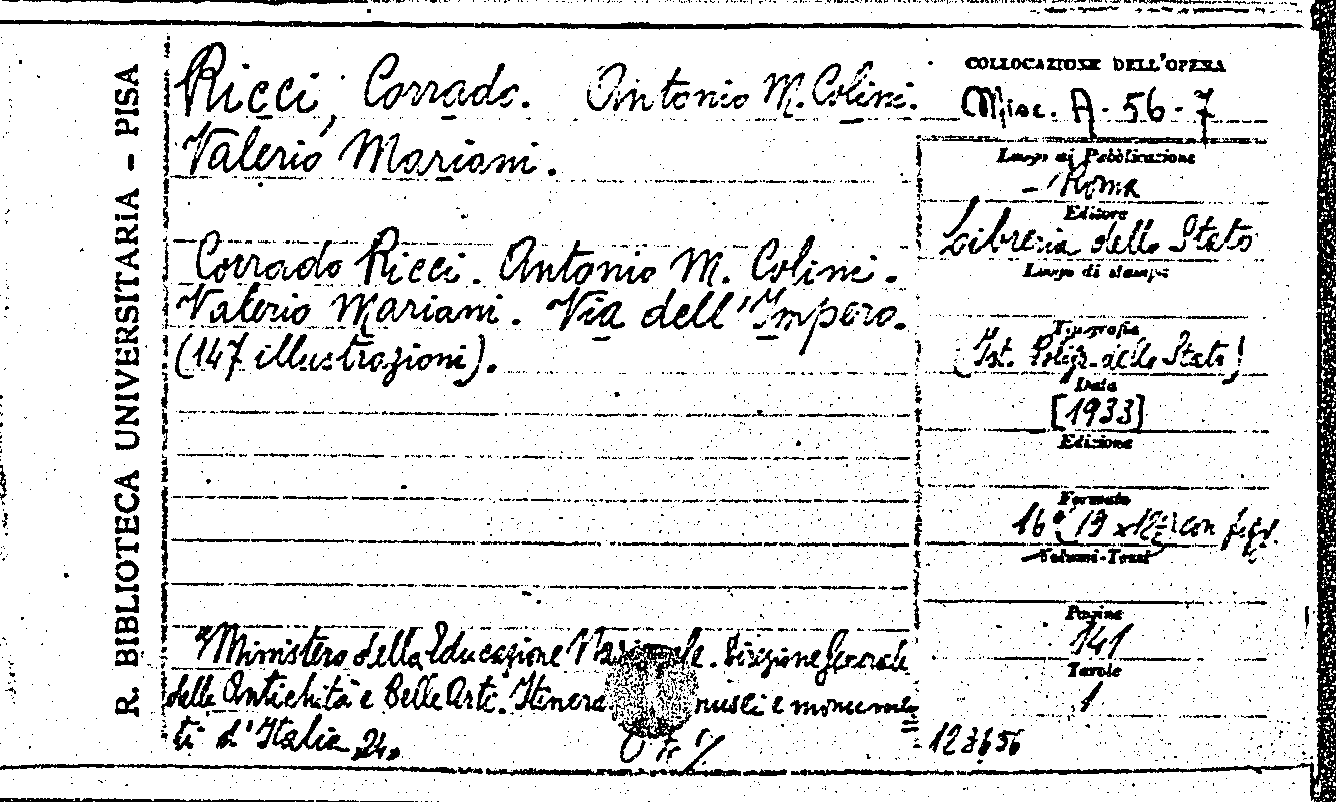 R. BIBLIOTECA UNIVERSITARIA - PISA
Ricci, Corrado. Antonio M. Colini.
Valerio Mariani.
Corrado Ricci. Antonio M. Colini.
Valerio Mariani. Via dell'Impero.
(147 illustrazioni).
"Ministero della Educazione Nazionale. Direzione Generale
delle Antichità e Belle Arti. Itinerari musei e monumen=
ti d'Italia 24"
COLLOCAZIONE DELL'OPERA
Misc. A - 56 - 7
Luogo di Pubblicazione
- Roma
Editore
Libreria dello Stato
Luogo di stampa
Tipografia
(Ist. Poligr. dello Stato)
Data
[1933]
Edizione
Formato
16° (19 x con figg.
Volumi-Tomi
Pagine
141
Tavole
1
123656